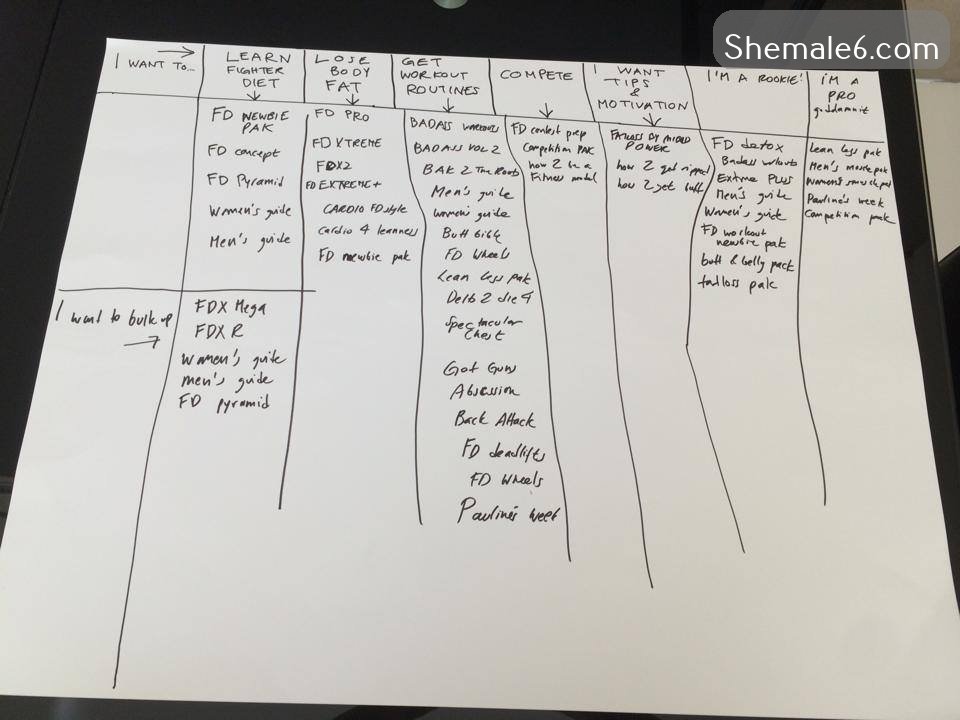 Shemale6.com
I WANT TO...
LEARN
FIGHTER
DIET
LOSE
BODY
FAT
GET
WORKOUT
ROUTINES
COMPETE
I WANT
TIPS
&
MOTIVATION
I'M A ROOKIE!
I'M A
PRO
goddamnit
FD NEWBIE
PAK
FD concept
FD Pyramid
Women's guide
Men's guide
FD PRO
FD XTREME
FDX2
FD EXTREME+
CARDIO FD style
Cardio 4 leanness
FD newbie pak
BADASS workouts
BADASS VOL 2
BAK 2 The Roots
Men's guide
women's guide
Butt Bible
FD Wheels
Lean Legs Pak
Delts 2 die 4
Spectacular
Chest
Got Guns
Absession
Back Attack
FD deadlifts
FD Wheels
Pauline's week
FD contest prep
Competition PAK
how 2 be a
Fitness model
FATLOSS BY MICRO
POWER
how 2 get ripped
how 2 get buff
FD detox
Badass workouts
Extreme PLUS
Men's guide
Women's guide
FD workout
newbie pak
butt & belly pack
fatloss pak
Lean legs pak
Men's muscle pak
Women's muscle pak
Pauline's week
Competition pack
I want to bulk up
FDX Mega
FDX R
Women's guide
men's guide
FD pyramid